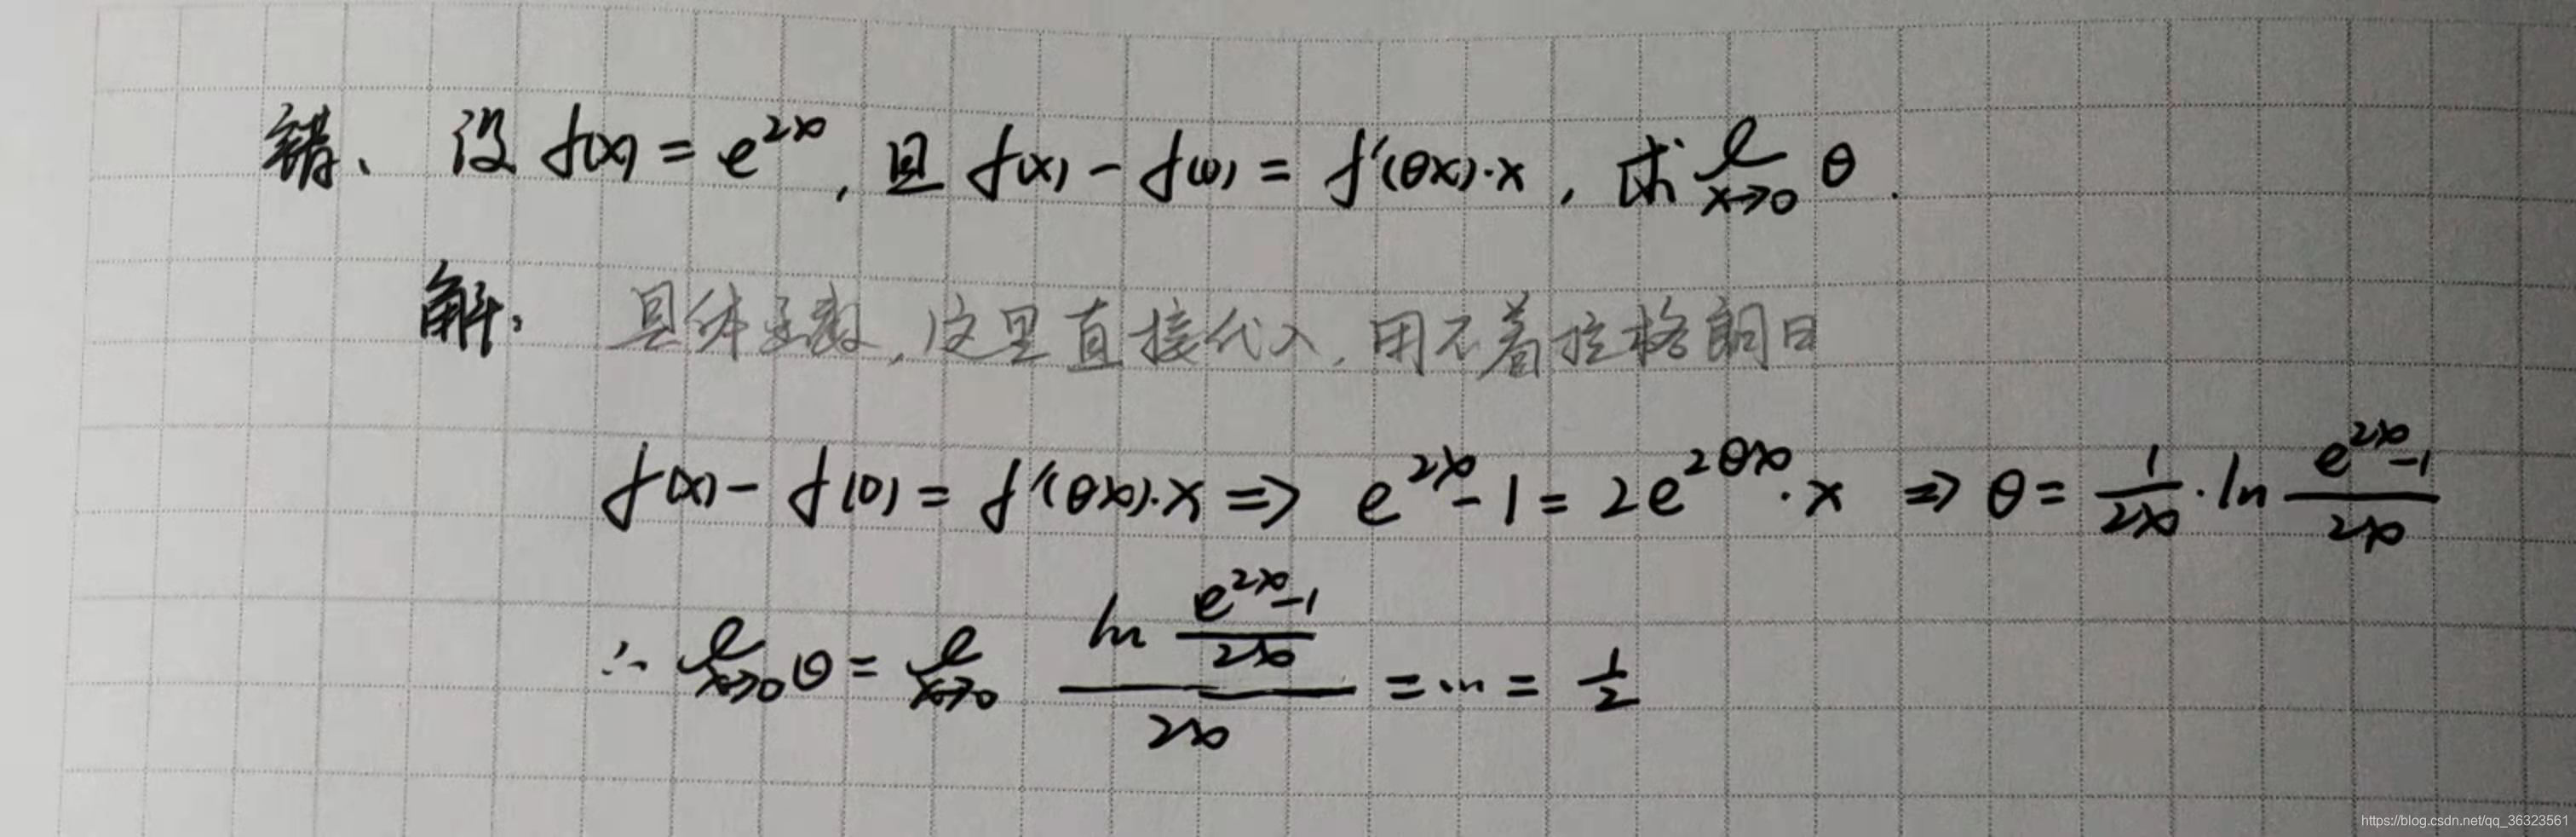 错、设 f(x) = e^{2x}, 且 f(x) - f(0) = f'(θx)·x, 求 l_{x→0} θ.
解: 具体函数, 这里直接代入, 用不着拉格朗日
f(x) - f(0) = f'(θx)·x ⇒ e^{2x} - 1 = 2e^{2θx}·x ⇒ θ = \frac{1}{2x}·ln \frac{e^{2x}-1}{2x}
∴ l_{x→0} θ = l_{x→0} \frac{ln \frac{e^{2x}-1}{2x}}{2x} = ... = \frac{1}{2}
https://blog.csdn.net/qq_36323561